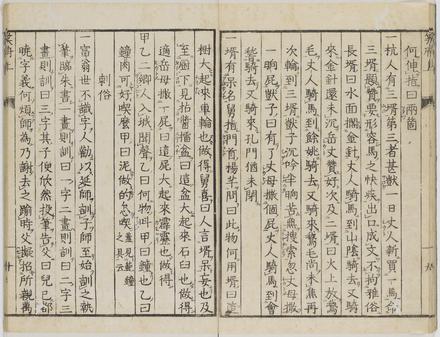 何使拖曰兩箇
一杭人有三壻第三者甚獃一日丈人新買一馬命
三壻題贊要形容馬之快疾出口成文不拘雅俗
長壻曰水面擱金針丈人騎馬到山陰騎去又騎
來金針還未沉岳丈贊好次及二壻曰火上放鵞
毛丈人騎馬到餘姚騎去又騎來鵞毛尚未焦再
次輪到三壻獃子沉吟半晌苦無搜索忽丈母撒
一晌屁獃子曰有了丈母撒個屁丈人騎馬到會
稽騎去又騎來孔門猶未閉
一壻有呆名舅指門首楊竿問曰此物何用壻曰這
樹大起來車輪也做得舅喜曰人言壻呆妄也及
至厨下見擂盆曰這盆大起來石臼也做得
適岳母撒一屁曰這屁大起來霹靂也做得
甲乙二鄉人入城聞聲乙曰何物叫甲曰鐘也乙曰
鐘肉可好喫麼甲曰泥做的怎喫蓋見範鐘之具云
刺俗
一富翁世不識字人勸以延師訓子師至始訓之執
筆臨朱書一畫則訓曰一字二畫則訓曰二字三
畫則訓曰三字其子便欣然投筆告父曰兒已都
曉字義何煩師為乃謝去之踰時父擬招所親萬